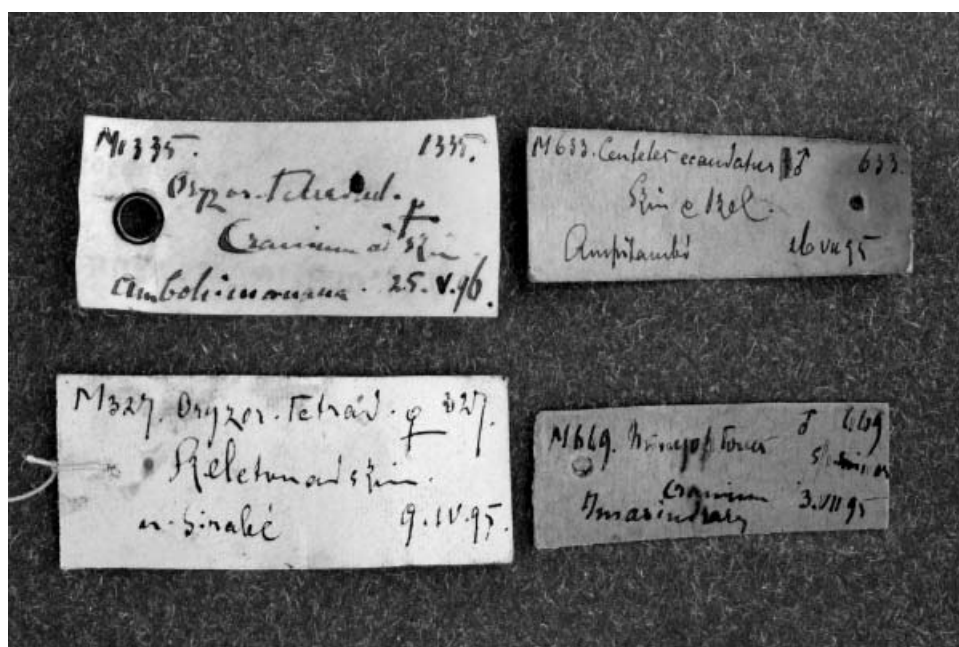 M1335. 1335.
Oryzor. Tetradact.
Cranium ad skin
Ambohimanana. 25.V.96.
M633. Centetes ecaudatus ♂ 633.
Skin e Skel.
Ampitambè 26 VII 95
M327. Oryzor. Tetrad. ♀ 327.
Skeleton ad skin.
n. Sirabé 9.IV.95.
M669. ♂ 669
Cranium 3.VII 95